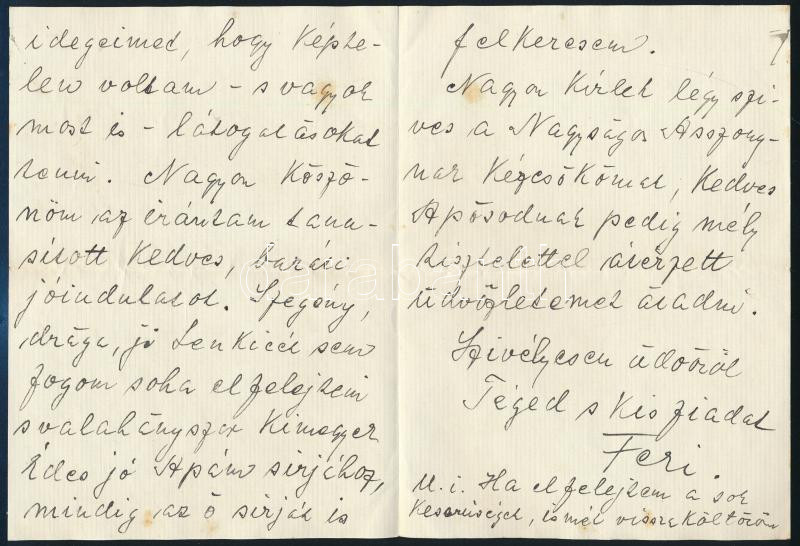 idegeimet, hogy képte-
len voltam - s vagyok
most is - látogatásokat
tenni. Nagyon köszö-
nöm az irántam tanu-
sított kedves, baráti
jóindulatot. Szegény,
drága, jó Lenkicét sem
fogom soha elfelejteni
s valahányszor kimegyek
Édes jó Apám sirjához,
mindig az ő sirját is
felkeresem.
Nagyon kérlek légy szi-
ves a Nagyságos Asszony-
nak kézcsókomat, kedves
Apósodnak pedig mély
tisztelettel átérzett
üdvözletemet átadni.
Szivélyesen üdvözöl
Téged s kis fiadat
Feri
U. i. Ha elfelejtem a sok
keserüséget, ismét visszaköltözöm